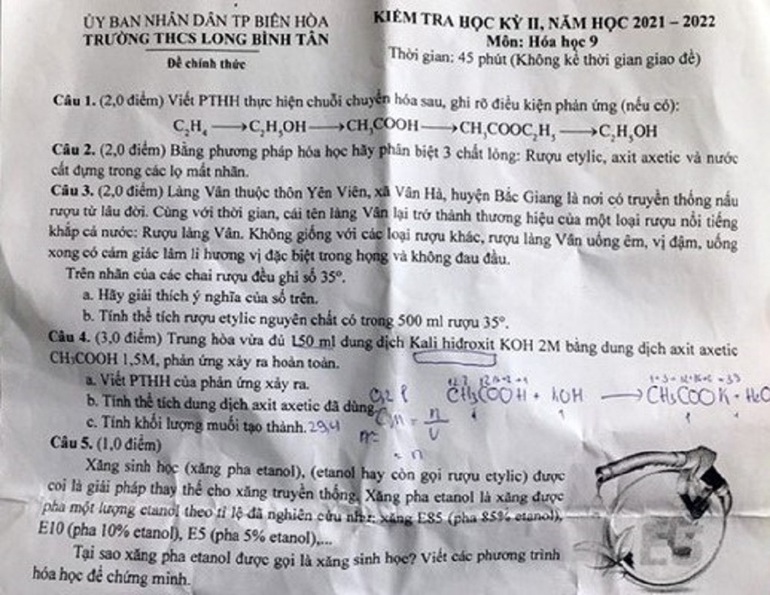 ỦY BAN NHÂN DÂN TP BIÊN HÒA
TRƯỜNG THCS LONG BÌNH TÂN
Đề chính thức
KIỂM TRA HỌC KỲ II, NĂM HỌC 2021 – 2022
Môn: Hóa học 9
Thời gian: 45 phút (Không kể thời gian giao đề)
Câu 1. (2,0 điểm) Viết PTHH thực hiện chuỗi chuyển hóa sau, ghi rõ điều kiện phản ứng (nếu có):
C₂H₄ ⟶ C₂H₅OH ⟶ CH₃COOH ⟶ CH₃COOC₂H₅ ⟶ C₂H₅OH
Câu 2. (2,0 điểm) Bằng phương pháp hóa học hãy phân biệt 3 chất lỏng: Rượu etylic, axit axetic và nước
cất đựng trong các lọ mất nhãn.
Câu 3. (2,0 điểm) Làng Vân thuộc thôn Yên Viên, xã Vân Hà, huyện Bắc Giang là nơi có truyền thống nấu
rượu từ lâu đời. Cùng với thời gian, cái tên làng Vân lại trở thành thương hiệu của một loại rượu nổi tiếng
khắp cả nước: Rượu làng Vân. Không giống với các loại rượu khác, rượu làng Vân uống êm, vị đậm, uống
xong có cảm giác lâm li hương vị đặc biệt trong họng và không đau đầu.
Trên nhãn của các chai rượu đều ghi số 35°.
a. Hãy giải thích ý nghĩa của số trên.
b. Tính thể tích rượu etylic nguyên chất có trong 500 ml rượu 35°.
Câu 4. (3,0 điểm) Trung hòa vừa đủ 150 ml dung dịch Kali hiđroxit KOH 2M bằng dung dịch axit axetic
CH₃COOH 1,5M, phản ứng xảy ra hoàn toàn.
a. Viết PTHH của phản ứng xảy ra.
CH₃COOH + KOH ⟶ CH₃COOK + H₂O
b. Tính thể tích dung dịch axit axetic đã dùng. 0,2 l
CM = n/V
c. Tính khối lượng muối tạo thành. 29,4
Câu 5. (1,0 điểm)
Xăng sinh học (xăng pha etanol), (etanol hay còn gọi rượu etylic) được
coi là giải pháp thay thế cho xăng truyền thống. Xăng pha etanol là xăng được
pha một lượng etanol theo tỉ lệ đã nghiên cứu như: xăng E85 (pha 85% etanol),
E10 (pha 10% etanol), E5 (pha 5% etanol),...
Tại sao xăng pha etanol được gọi là xăng sinh học? Viết các phương trình
hóa học để chứng minh.